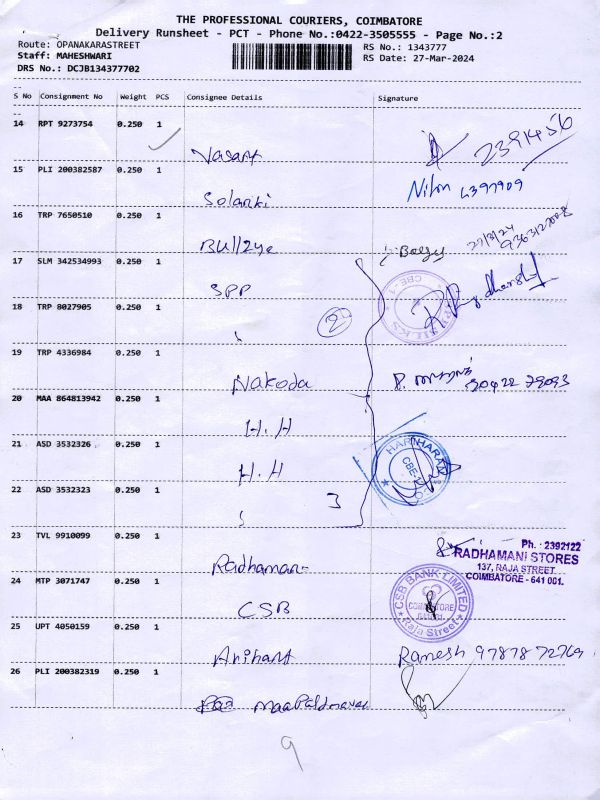 THE PROFESSIONAL COURIERS, COIMBATORE
Delivery Runsheet - PCT - Phone No.:0422-3505555 - Page No.:2
Route: OPANAKARASTREET
RS No.: 1343777
Staff: MAHESHWARI
RS Date: 27-Mar-2024
DRS No.: DCJB134377702
S No Consignment No Weight PCS Consignee Details Signature
14 RPT 9273754 0.250 1
Vasant 2391456
15 PLI 200382587 0.250 1
Solanki 6397909
16 TRP 7650510 0.250 1
Bull2ye 27/3/24
17 SLM 342534993 0.250 1
SPP
18 TRP 8027905 0.250 1
2
19 TRP 4336984 0.250 1
Nakoda
20 MAA 864813942 0.250 1
H.H
21 ASD 3532326 0.250 1
H.H
HARIHARAN
22 ASD 3532323 0.250 1
3
23 TVL 9910099 0.250 1
Ph. : 2392122
RADHAMANI STORES
137, RAJA STREET
COIMBATORE - 641 001.
Radhaman
24 MTP 3071747 0.250 1
CSB
CSB BANK LIMITED
COIMBATORE
Raja Street
25 UPT 4050159 0.250 1
Arihant Ramesh 9787872769
26 PLI 200382319 0.250 1
9